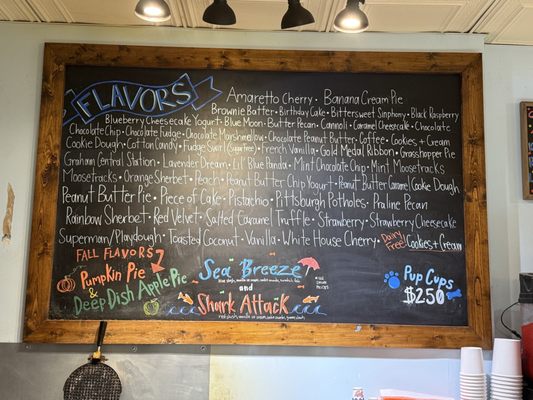 FLAVORS
Amaretto Cherry • Banana Cream Pie
Brownie Batter • Birthday Cake • Bittersweet Sinphony • Black Raspberry
Blueberry Cheesecake Yogurt • Blue Moon • Butter Pecan • Cannoli • Caramel Cheesecake • Chocolate
Chocolate Chip • Chocolate Fudge • Chocolate Marshmallow • Chocolate Peanut Butter • Coffee • Cookies + Cream
Cookie Dough • Cotton Candy • Fudge Swirl (Sugar Free) • French Vanilla • Gold Medal Ribbon • Grasshopper Pie
Graham Central Station • Lavender Dream • Lil' Blue Panda • Mint Chocolate Chip • Mint Moose Tracks
Moose Tracks • Orange Sherbet • Peach • Peanut Butter Chip Yogurt • Peanut Butter Caramel Cookie Dough
Peanut Butter Pie • Piece of Cake • Pistachio • Pittsburgh Potholes • Praline Pecan
Rainbow Sherbet • Red Velvet • Salted Caramel Truffle • Strawberry • Strawberry Cheesecake
Superman/Playdough • Toasted Coconut • Vanilla • White House Cherry • Dairy Free Cookies + Cream
FALL FLAVORS
Pumpkin Pie
& Deep Dish Apple Pie
Sea Breeze
and
Shark Attack
Pup Cups
$2.50